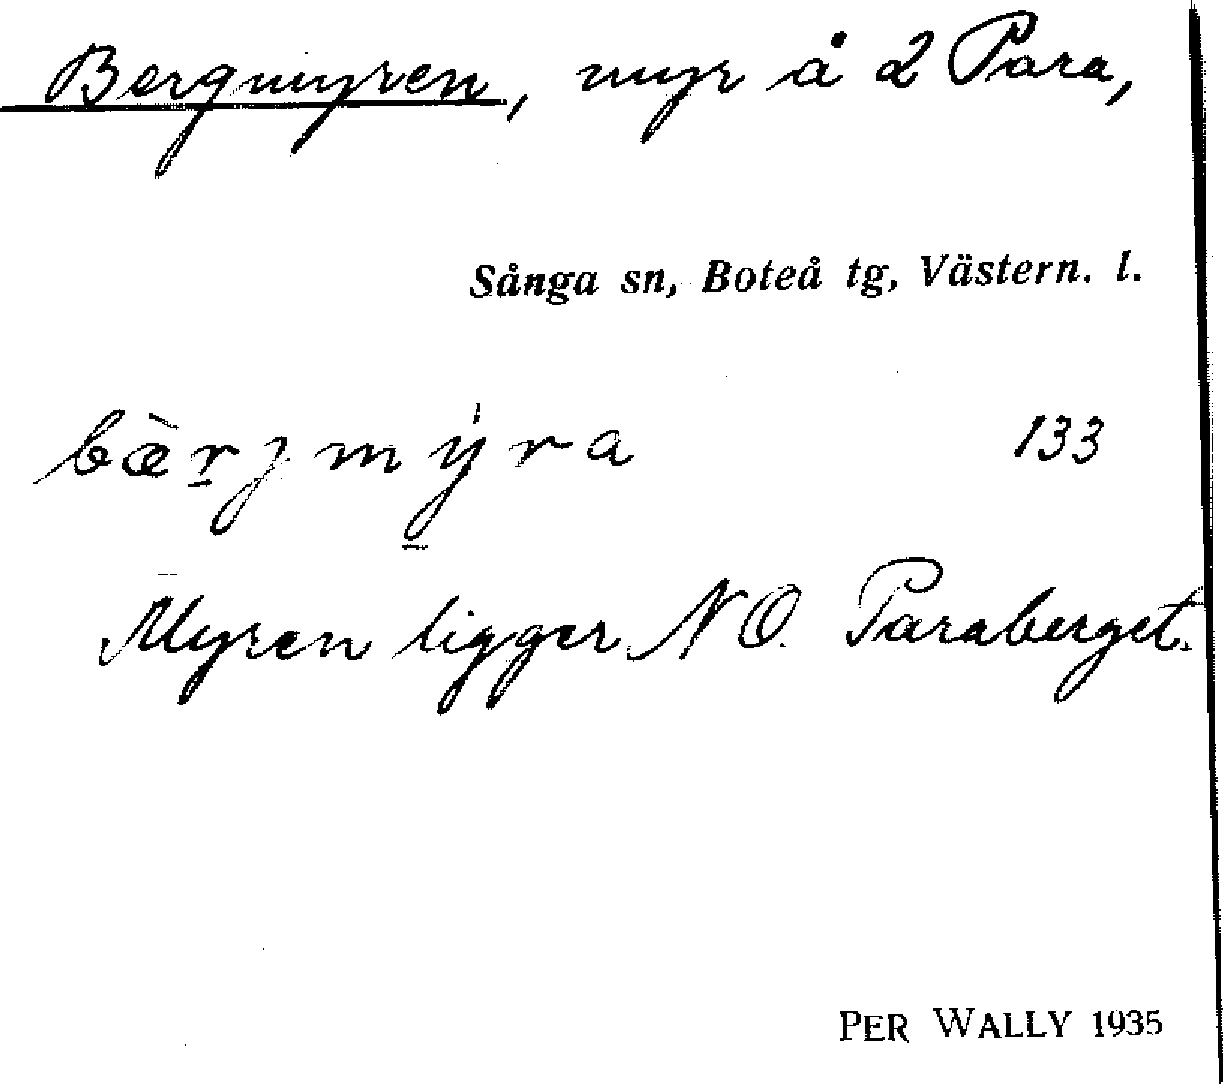 Bergmyren, myr å 2 Para,
Sånga sn, Boteå tg, Västern. l.
bæ̀r̠jmy̠̍ra 133
Myren ligger NO. Paraberget.
PER WALLY 1935